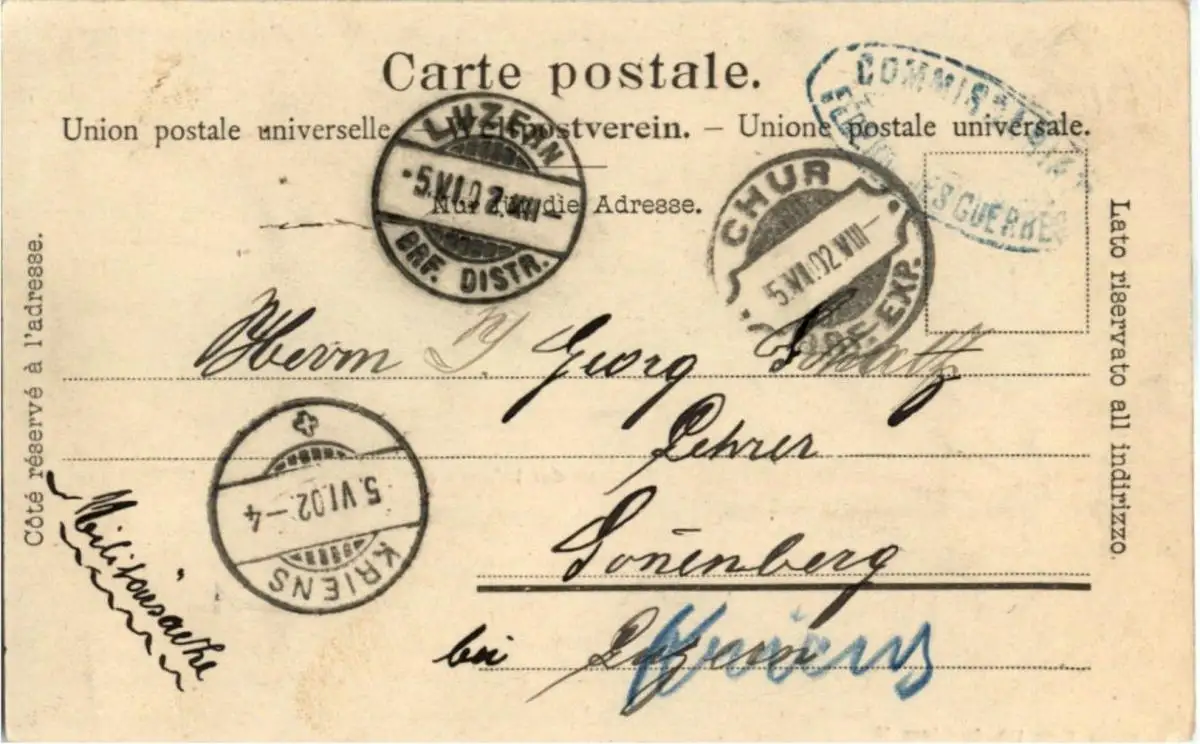 Carte postale.
COMMISSARIAT
DES GUERRES
Union postale universelle. – Weltpostverein. – Unione postale universale.
Nur für die Adresse.
LUZERN
5.VI.02.VIII–
BRF. DISTR.
CHUR
5.VI.02.VIII–
BRF. EXP.
Côté réservé à l'adresse.
Lato riservato all indirizzo.
Herrn Georg
Lehrer
5.VI.02.–4
KRIENS
Militärsache
Son̄enberg
bei Luzern
Kriens